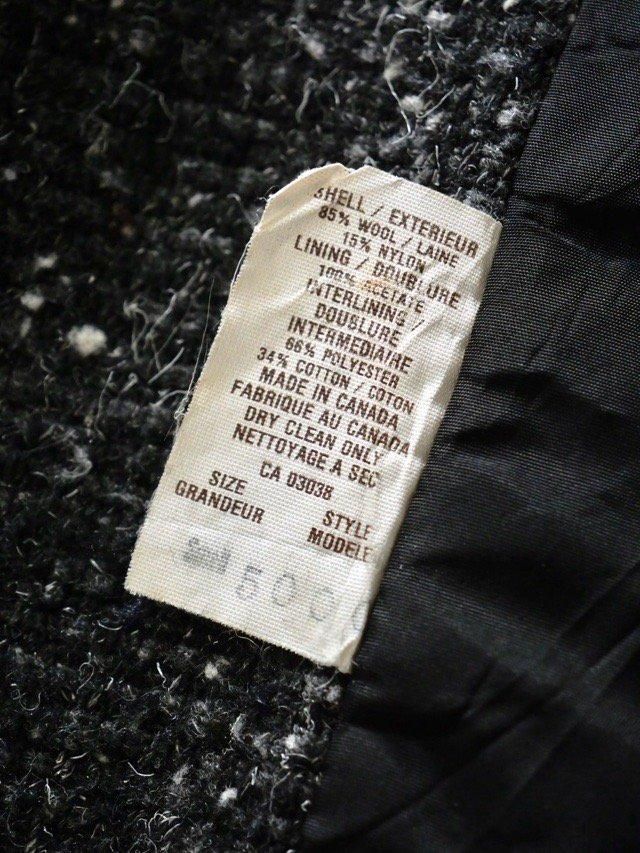 SHELL / EXTERIEUR
85% WOOL / LAINE
15% NYLON
LINING / DOUBLURE
100% ACETATE
INTERLINING /
DOUBLURE
INTERMEDIAIRE
66% POLYESTER
34% COTTON / COTON
MADE IN CANADA
FABRIQUE AU CANADA
DRY CLEAN ONLY
NETTOYAGE A SEC
CA 03038
SIZE STYLE
GRANDEUR MODELE
Small 500